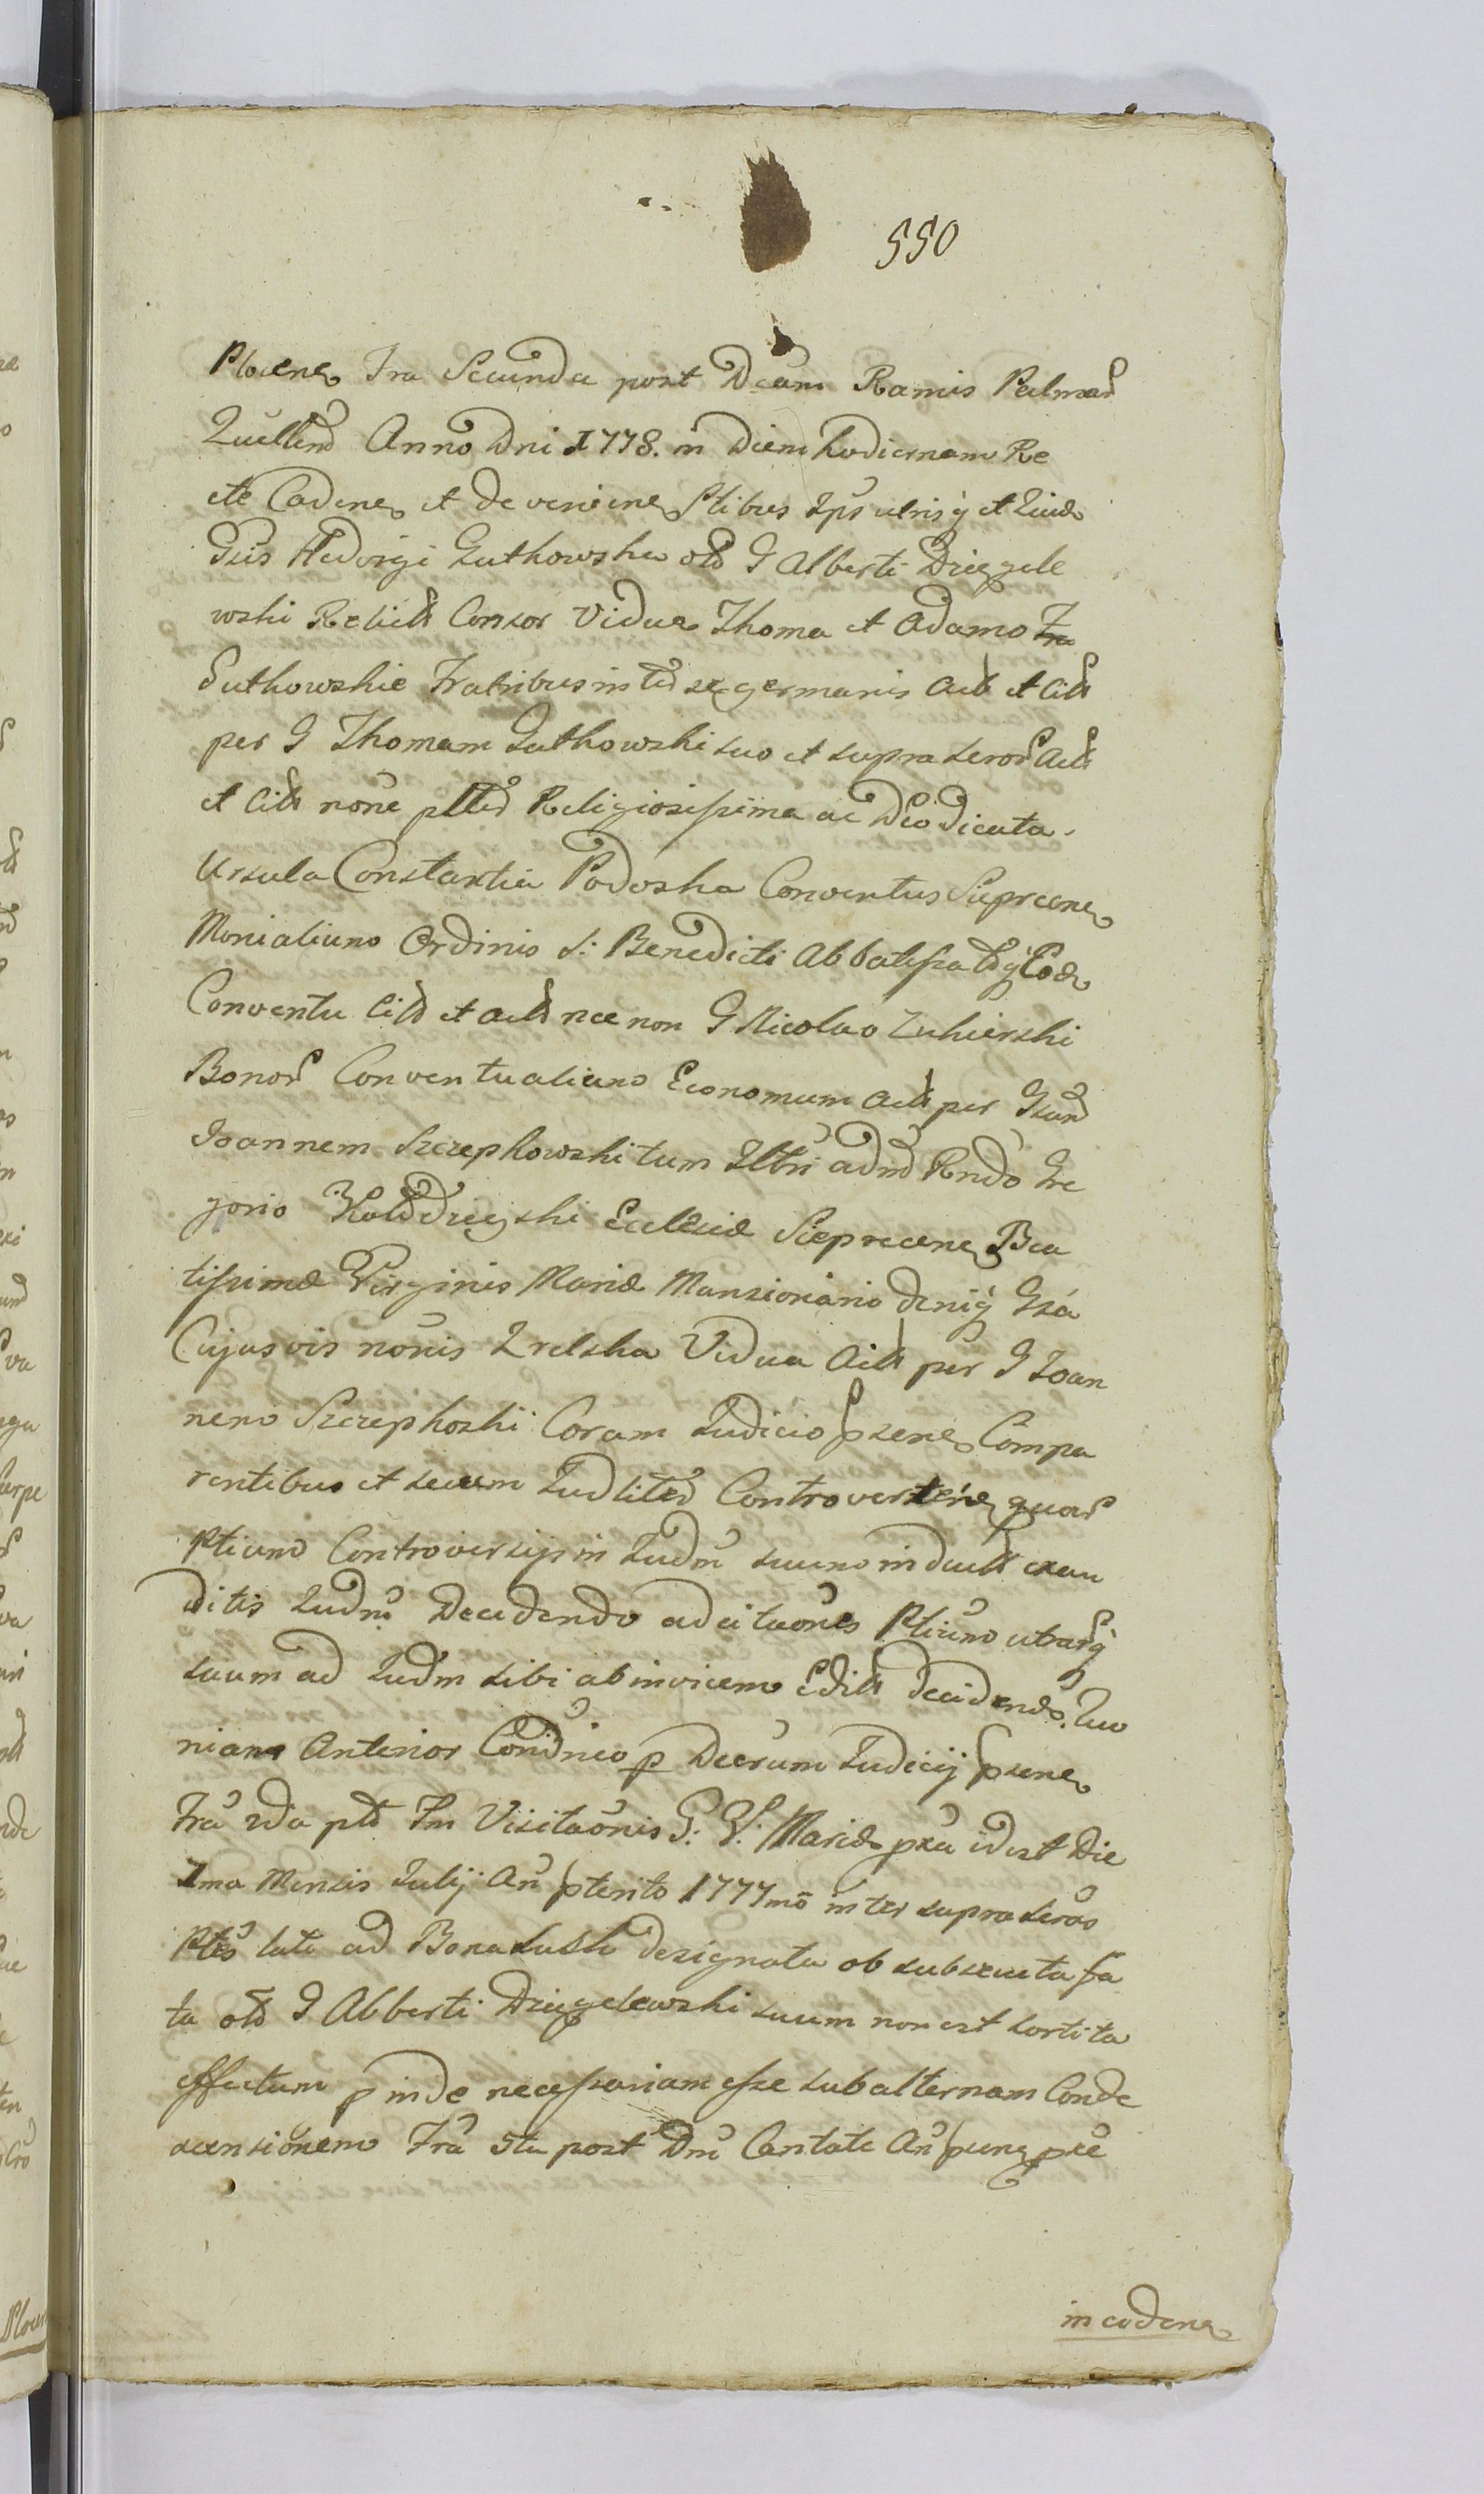 550
Plocen Fra Secunda post Dcam Ramis Palmar
Anno Dni 1778. in Diem hodiernam Re
cte Caden et de venien Ptibus Ips utrisq et
Gsis Hedvigi Gutkowska olb G Alberti Dziegele
wski Relicta Consor Vidua Thoma et Adamo Fra
Gutkowskie Fratribus inter se germanis Actr et Citt
per G Thomam Gutkowski suo et supra scror Actr
et Citt none Religiosissima ac Deo Dicata
Ursula Constantia Podoska Conventus Sieprcen
Monialium Ordinis S: Benedicti Abbatissa
Conventu Citt et Actt nec non G Nicolao Zukierski
Bonor Conventualium Economum Actt per Gsum
Joannem Szczepkowski tum Illri adm Rndo Gre
gorio Ecclesiæ Sieprecen Bea
tissimæ Virginis Mariæ Mansionario deniq Gsa
Cujusvis nonis Vidua Citt per G Joan
nem Szczepkoski Coram Judicio psen Compa
rentibus et secum Judliter Controverten quar
Ptium Controversijs in Judm suum induct exau
ditis Judm Decidendo ad citaones Ptium utrarq
suum ad Judm sibi ab invicem Editt Decidendo. Quo
niam Anterior Condnio p Decrum Judicij psen
Fra 2da pt Fm Visitaonis B: V: Mariæ pxa idest Die
7ma Mensis Julij An pterito 1777mo inter supra scras
Ptes lata ad Bona designata ob subsecuta fa
ta olb G Alberti Dziegelewski suum non est sortita
effectum p inde necessariam esse subalternam Conde
scensionem Fra 5ta post Dni Cantate An psen pxe
in eoden